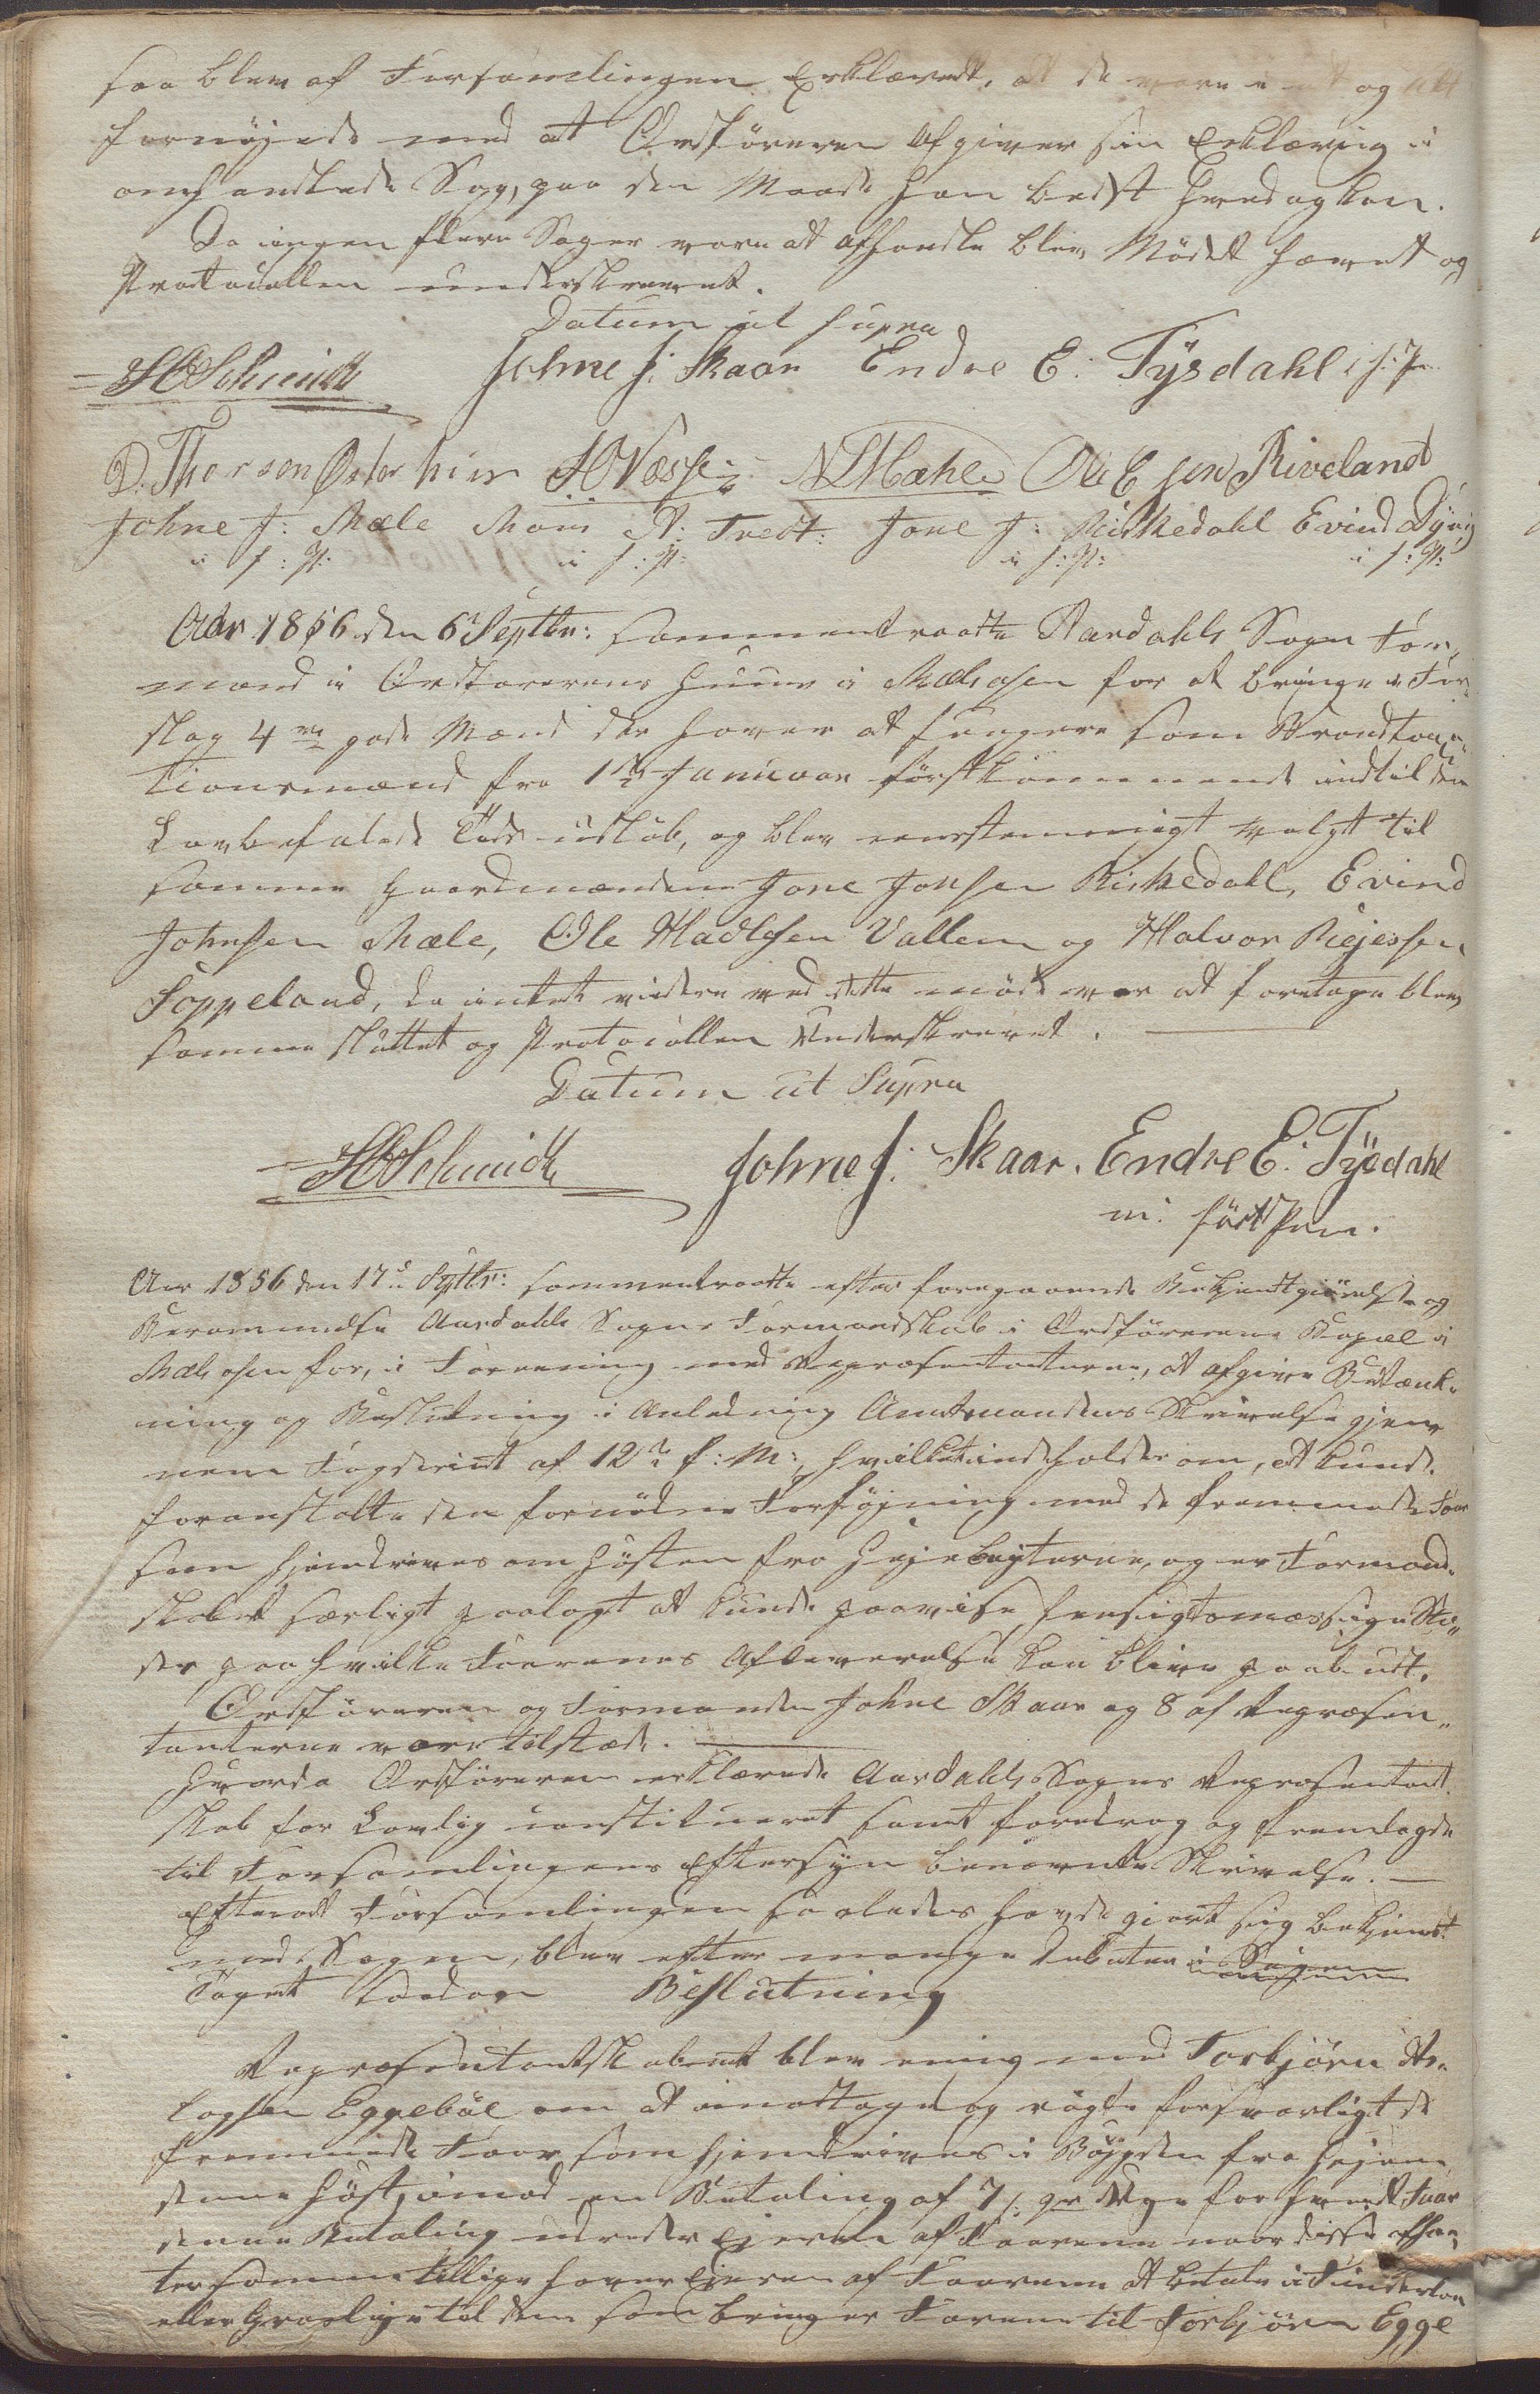 saa blev af Forsamlingen Erklæret, at de vare og
fornøjede med at Ordføreren afgiver sin Erklæring i
omhandlede Sag, paa den Maade han bedst
Da ingen flere Sager vare at afhandle blev Mødet hævet og
Protocollen underskrevet.
Datum ut supra
Schmidt Johne J: Skaar Endre E: Tÿsdahl i f: P
D. Thorsen Østerhus Næsse N Mæhle Ole E sen Riveland
Johne J: Mæle Mons A: Tredt: Jone J: Riskedahl Evind
i f: P: i f: P: i f: P: i f: P:
Aar 1856 den 6te Septbr: sammentraadte Aardahls Sogns For-
mænd i Ordførerens Huus i Mælsosen for at bringe i For-
slag 4re gode Mænd der haver at fungere som Brandtaxa-
tionsmænd fra 1te Januar førstkommende indtil den
Lovbefalede Tids udløb, og blev eenstemmigt valgt til
samme Gaardmændene Jone Jonsen Riskedahl, Evind
Johnsen Mæle, Ole Hadlesen Vallem og Halvor Reiersen
Soppeland, da intet videre ved dette møde var at foretage blev
samme sluttet og Protocollen Underskrevet.
Datum ut Supra
Schmidt Johne J: Skaar. Endre E: Tÿsdahl
m:ført Pen.
Aar 1856 den 17de Septbr: sammentraadte efter foregaaende Bekjendtgjørelse og
Berammelse Aardahls Sogns Formandskab i Ordførerens Bopæl i
Mælsosen for, i Forening med Repræsentanterne, at afgive Betænk-
ning og Beslutning i Anledning Amtmandens Skrivelse gjen-
nem Fogderiet af 12te f: M:, hvilket indeholder om, at kunde
foranstalte den fornødne Forføjning med de fremmede Faar
som hjemdrives om Høsten fra Hejebeiterne, og er Formand-
skabet særligt paalagt at kunde paavise hensigtsmæssige Ste-
der paa hvilke Faarenes Afleverelse kan blive paabudt.
Ordføreren og Formanden Johne Skaar og 8 af Repræsen-
tanterne vare tilstæde.
Hvorda Ordføreren erklærede Aardahls Sogns Repræsentant-
skab for Lovlig constitueret samt foredrog og fremlagde
til Forsamlingens Eftersyn benævnte Skrivelse.
Efterat Forsamlingen saaledes havde gjort sig bekjendt
med Sagen, blev efter mange Debatter i Sagen
Taget saadan Beslutning
Repræsentantskabet blev enig med Torbjørn As-
lagsen Eggebøe om at imodtage og røgte forsvarligt de
fremmede Faar som hjemdrives i Bøygden fra Hejene
denne Høst, imod en Betaling af 7 s. pr Uge for hvert Faar
denne Betaling udreder Ejerne af Faarene naar disse afhen-
tes samme tillige haver Ejeren af Faarene at betale i Finderløn
eller til dem som bringer Faarene til Torbjørn Egge